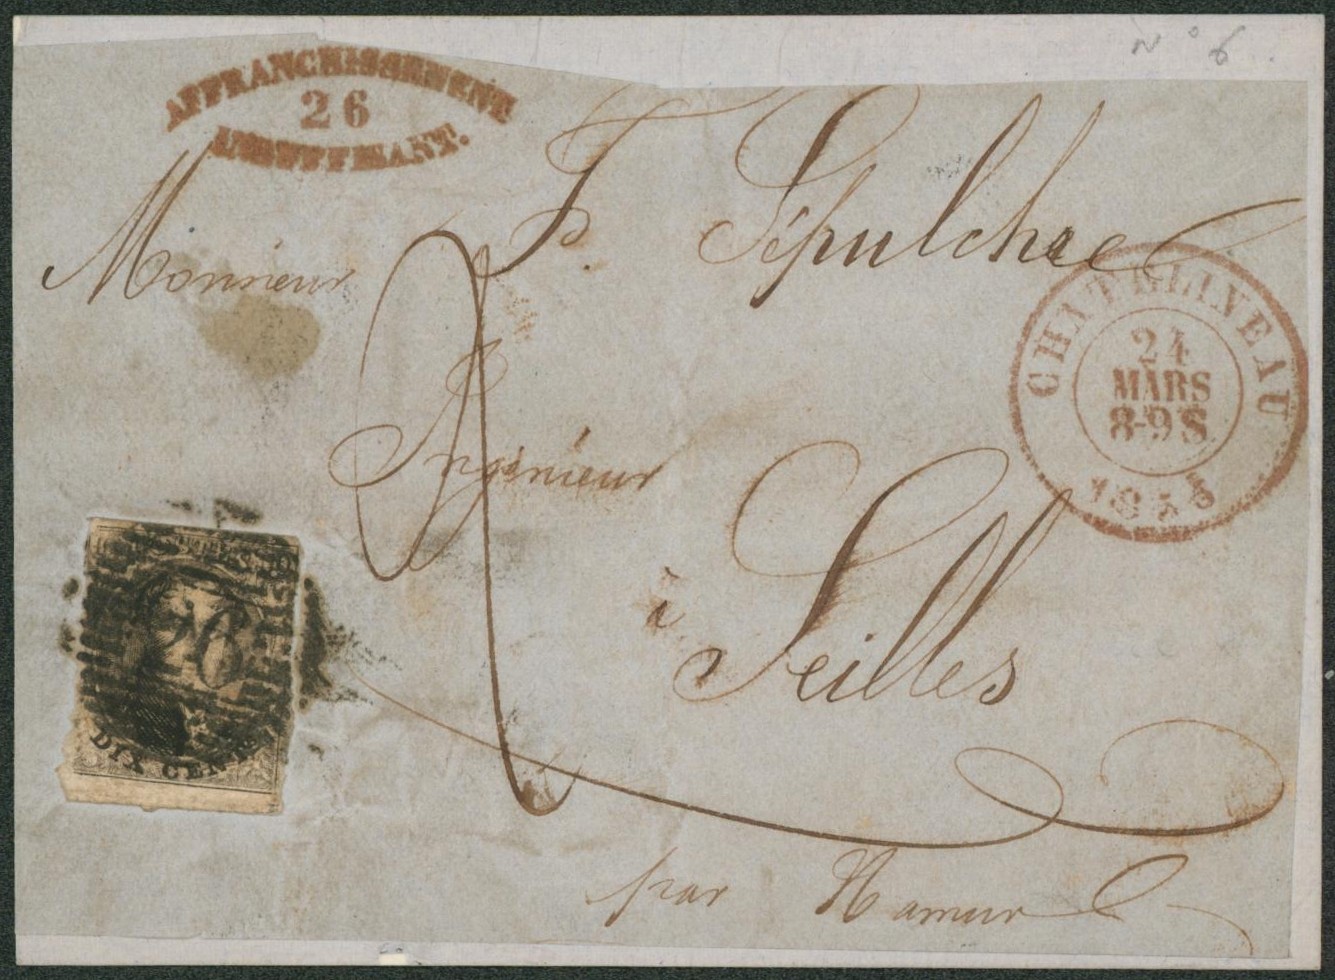 N° 6
AFFRANCHISSEMENT
26
INSUFFISANT.
Monsieur
F. Sépulchre
CHATELINEAU
24
MARS
8-9 S
1855
Ingénieur
à
Seilles
26
DIX CENTS
par Namur